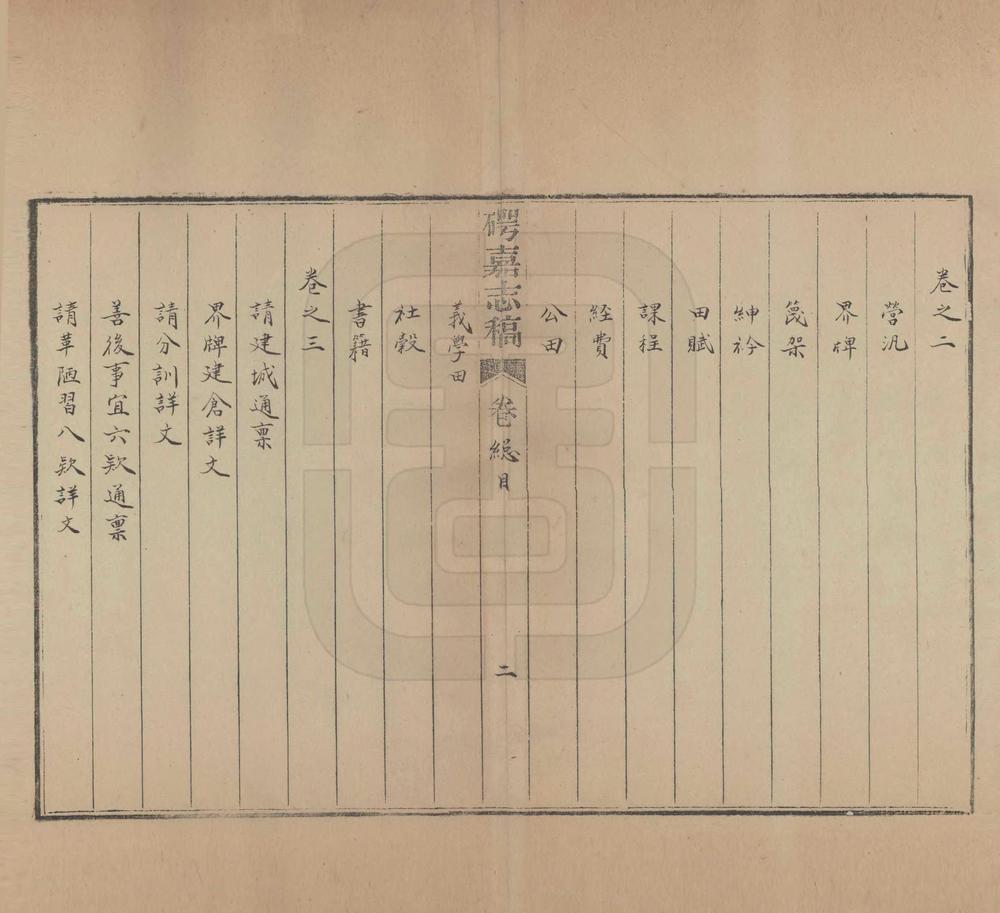 卷之二
營汛
界牌
篾架
紳衿
田賦
課程
经費
公田
碍嘉志稿
卷總目
二
義學田
社穀
書籍
卷之三
請建城通禀
界牌建倉詳文
請分訓詳文
善後事宜六欵通禀
請革陋習八欵詳文